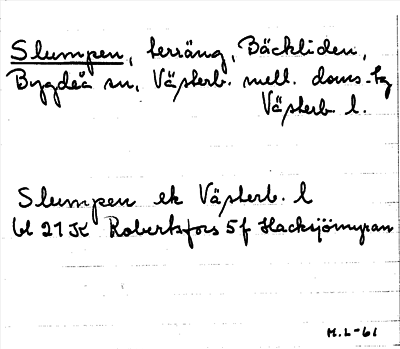 Slumpen, terräng, Bäckliden,
Bygdeå sn, Västerb. mell. doms-hg
Västerb. l.
Slumpen ek Västerb. l
bl 21 K Robertsfors 5 f Hacksjömyran
M.L-61